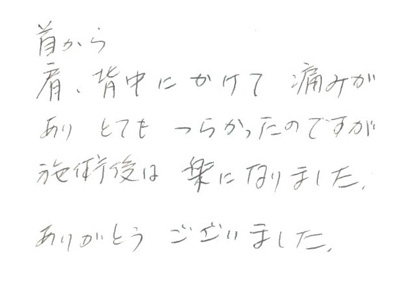 首から
肩、背中にかけて 痛みが
あり とても つらかったのですが
施術後は 楽になりました。
ありがとう ございました。